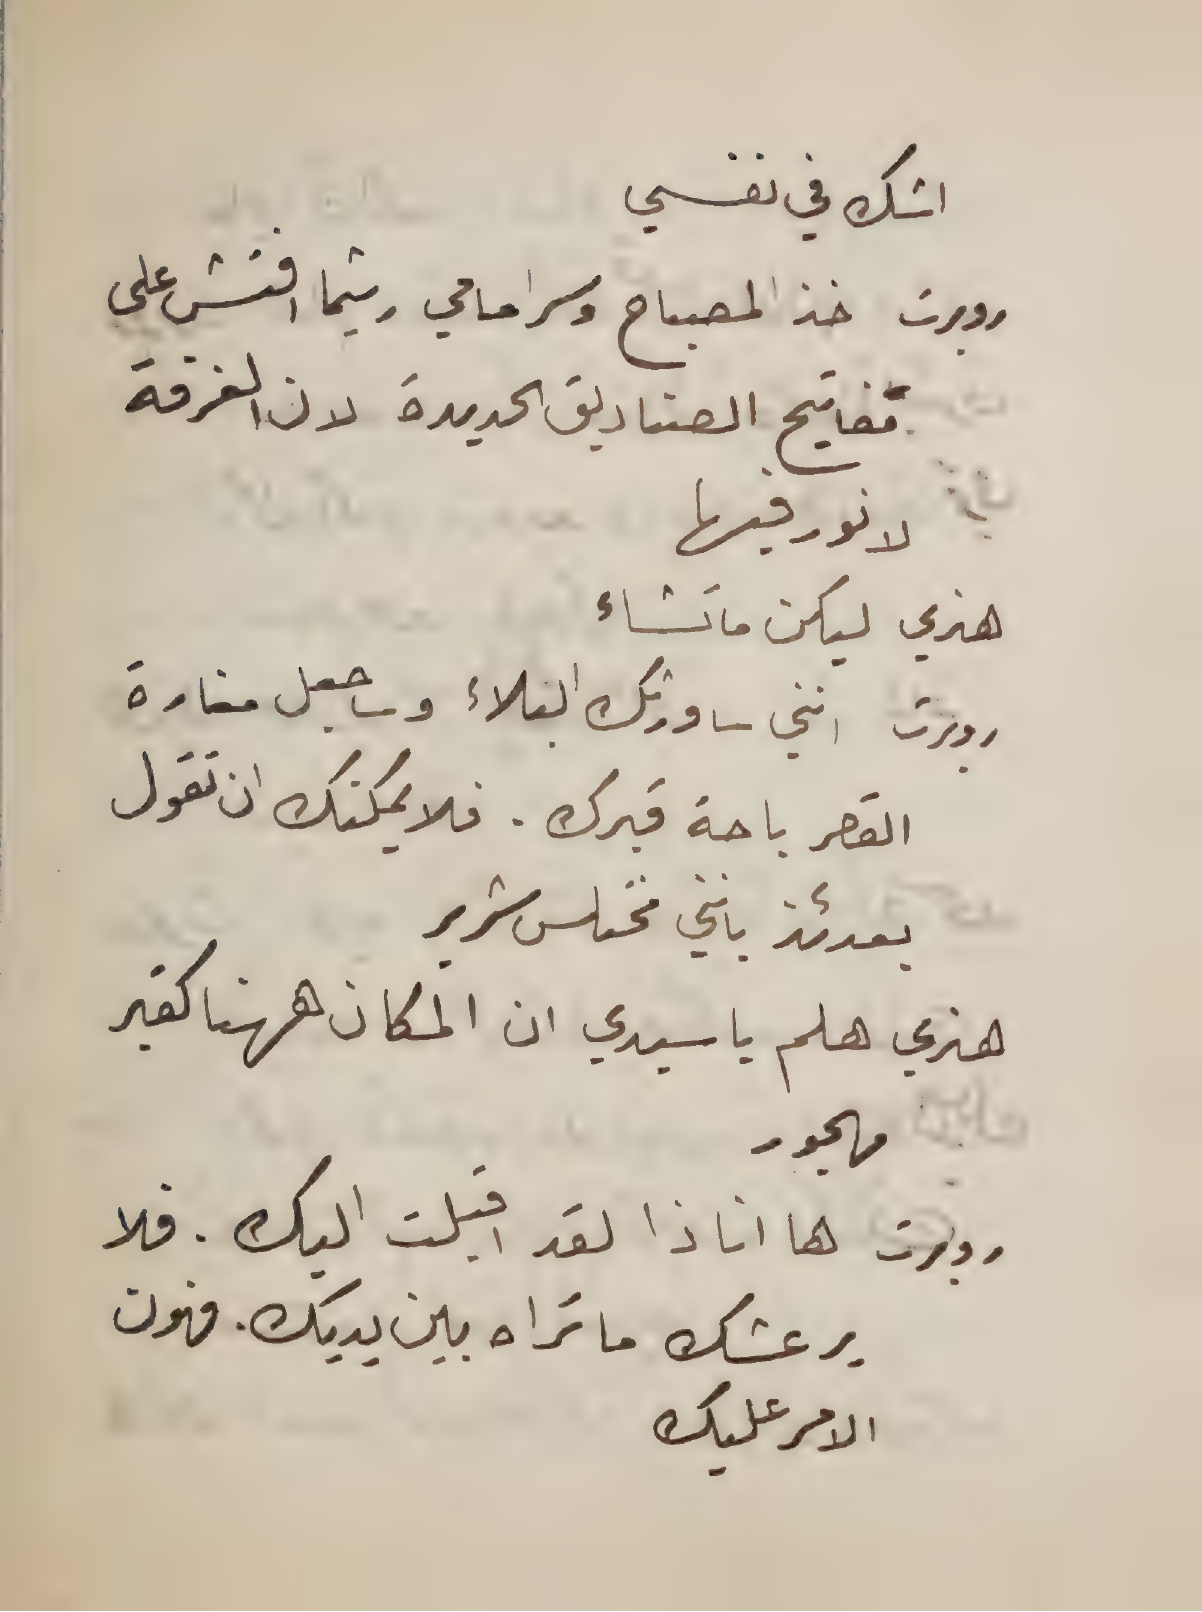 اشك في نفسي
روبرت خذ المصباح وسر امامي ريثما افتش على
مفاتيح الصناديق الحديدة لان الغرفة
لا نور فيها
هنري ليكن ما تشاء
روبرت انني ساورثك البلاء وساجعل مغارة
القصر باحة قبرك . فلا يمكنك ان تقول
بعدئذ بانني مختلس شرير
هنري هلم يا سيدي ان المكان ههنا كقبر
مهجور
روبرت ها انا ذا لقد اقبلت اليك . فلا
يرعشك ما تراه بين يديك . فهون
الامر عليك